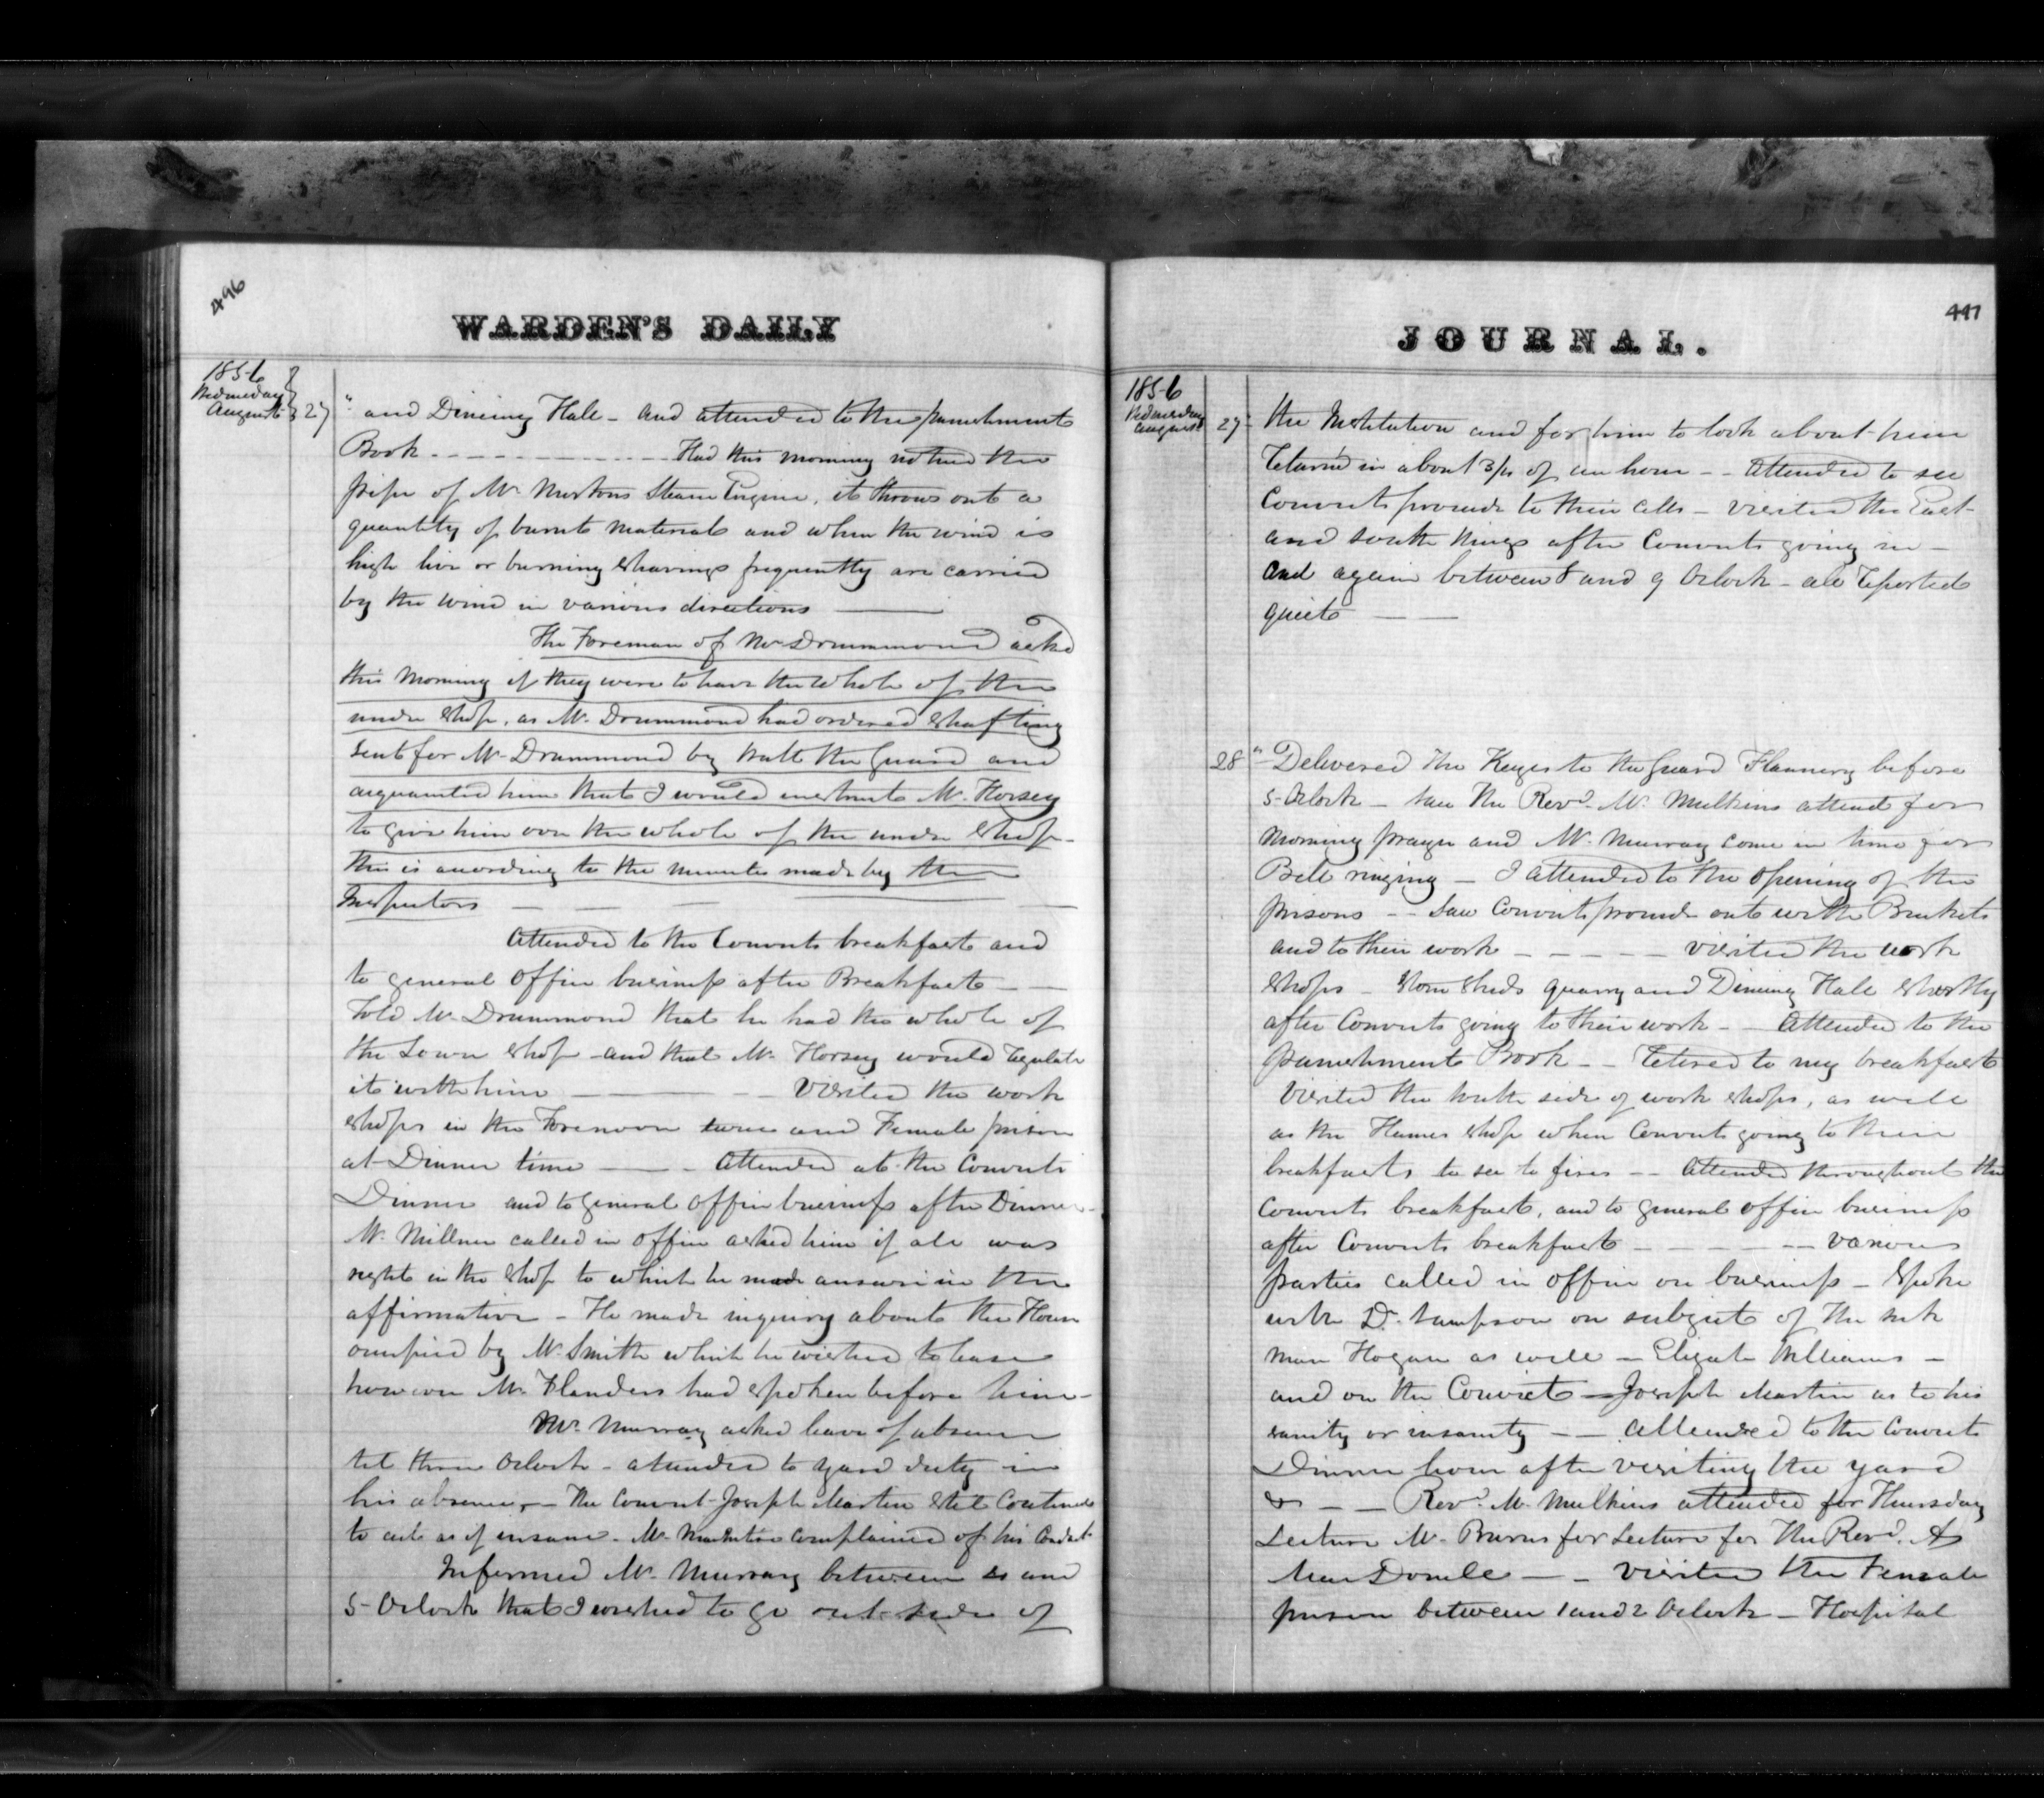 496
WARDEN'S DAILY
1856
Wednesday
August 27
" and Dining Hall - and attended to the punishment
Book - - - - - Had this morning noticed the
pipe of Mr Mortons Steam Engine, it throws out a
quantity of burnt material and when the wind is
high live or burning shavings frequently are carried
by the wind in various directions —
The Foreman of Mr Drummond asked
this morning if they were to have the whole of the
under shop, as Mr Drummond had ordered shafting
sent for Mr Drummond by Watt the Guard and
acquainted him that I would instruct Mr Horsey
to give him over the whole of the under shop -
this is according to the minutes made by the
Inspectors — — —
Attended to the Convicts breakfast and
to general office business after Breakfast — —
Told Mr Drummond that he had the whole of
the Lower shop - and that Mr Horsey would regulate
it with him — — Visited the work
shops in the Forenoon twice and Female prison
at Dinner time — - Attended at the Convicts
Dinner and to general office business after Dinner -
Mr Millner called in office asked him if all was
right in the shop to which he made answer in the
affirmative - He made inquiry about the House
occupied by Mr Smith which he wished to lease
however Mr Flanders had spoken before him -
Mr Murray asked leave of absence
til three Oclock - attended to yard duty in
his absence, - The Convict Joseph Martin still Continues
to act as if insane - Mr complained of his Conduct
Informed Mr Murray between and
5 Oclock that I wished to go out side of
JOURNAL.
447
1856
Wednesday
August 27
the Institution and for him to look about him
Returned in about 3/4 of an hour - - Attended to see
Convicts proceed to their cells - visited the East
and South Wings after Convicts going in -
and again between 8 and 9 Oclock - all reported
quiet — —
28 " Delivered the Keys to the Guard Flannery before
5 Oclock - saw the Revd. Mr Mulkins attend for
morning prayer and Mr Murray come in time for
Bell ringing - I attended to the opening of the
prisons - - Saw Convicts proceed out with Buckets
and to their work - - - - - visited the work
shops - stone sheds quarry and Dining Hall shortly
after Convicts going to their work - - Attended to the
punishment Book - - Retired to my breakfast
Visited the south side of work shops, as well
as the Hames shop when Convicts going to their
breakfasts to see to fires - - Attended throughout the
Convicts breakfast, and to general office business
after Convicts breakfast - - - various
parties called in office on business - Spoke
with Dr. Sampson on subject of the sick
man Hogan as well - Elizabth Williams -
and on the Convict - Joseph Martin as to his
sanity or insanity - - Attended to the Convicts
Dinner hour after visiting the yard
&c - - Revd. Mr Mulkins attended for Thursday
Lecture Mr Burns for Lecture for the Revd. A
MacDonell - - Visited the Female
prison between 1 and 2 Oclock - Hospital